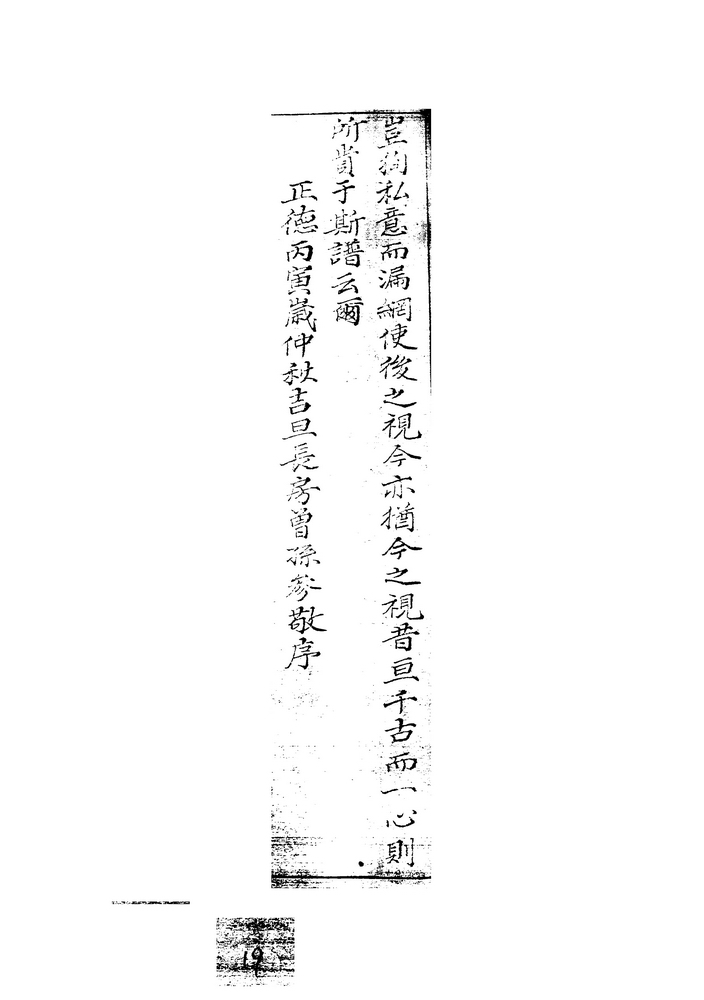 豈狥私意而漏網使後之視今亦猶今之視昔亘千古而一心則
所貴于斯譜云爾
正德丙寅歲仲秋吉旦長房曾孫參敬序
19